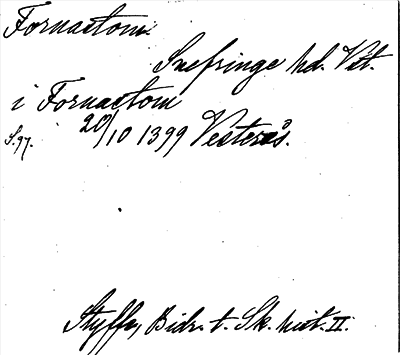 Fornaetom.
Snefringe hd. Vst.
i Fornaetom
S. 97. 20/10 1399 Vesterås.
Styffe, Bidr. t. Sk. hist. II.